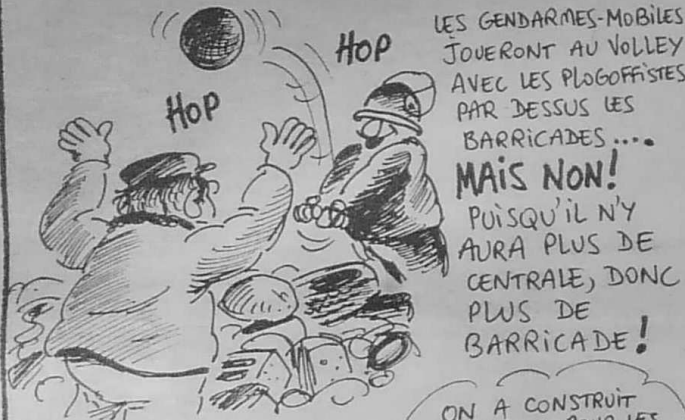 HOP
HOP
LES GENDARMES-MOBILES
JOUERONT AU VOLLEY
AVEC LES PLOGOFFISTES
PAR DESSUS LES
BARRICADES....
MAIS NON!
PUISQU'IL N'Y
AURA PLUS DE
CENTRALE, DONC
PLUS DE
BARRICADE!
ON A CONSTRUIT
LES